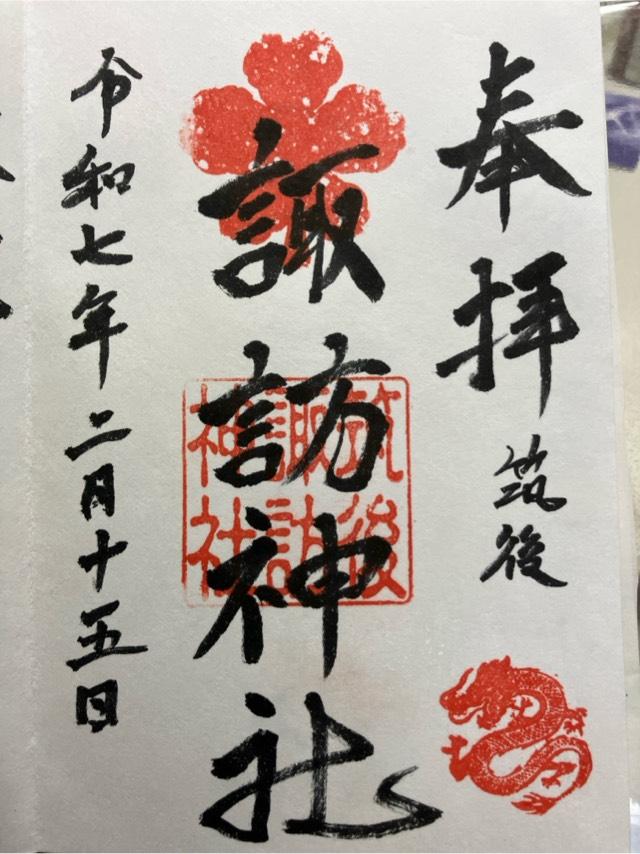 奉拝
筑後
諏訪神社
筑後
諏訪
神社
令和七年二月十五日